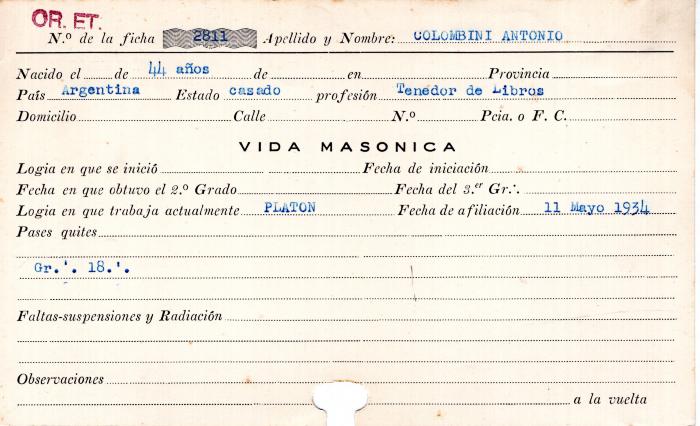 OR. ET.
N.º de la ficha 2811 Apellido y Nombre: COLOMBINI ANTONIO
Nacido el de 44 años de en Provincia
País Argentina Estado casado profesión Tenedor de Libros
Domicilio Calle N.º Pcia. o F. C.
VIDA MASONICA
Logia en que se inició Fecha de iniciación
Fecha en que obtuvo el 2.º Grado Fecha del 3.er Gr.'.
Logia en que trabaja actualmente PLATON Fecha de afiliación 11 Mayo 1934
Pases quites
Gr.'. 18.'.
Faltas-suspensiones y Radiación
Observaciones
a la vuelta